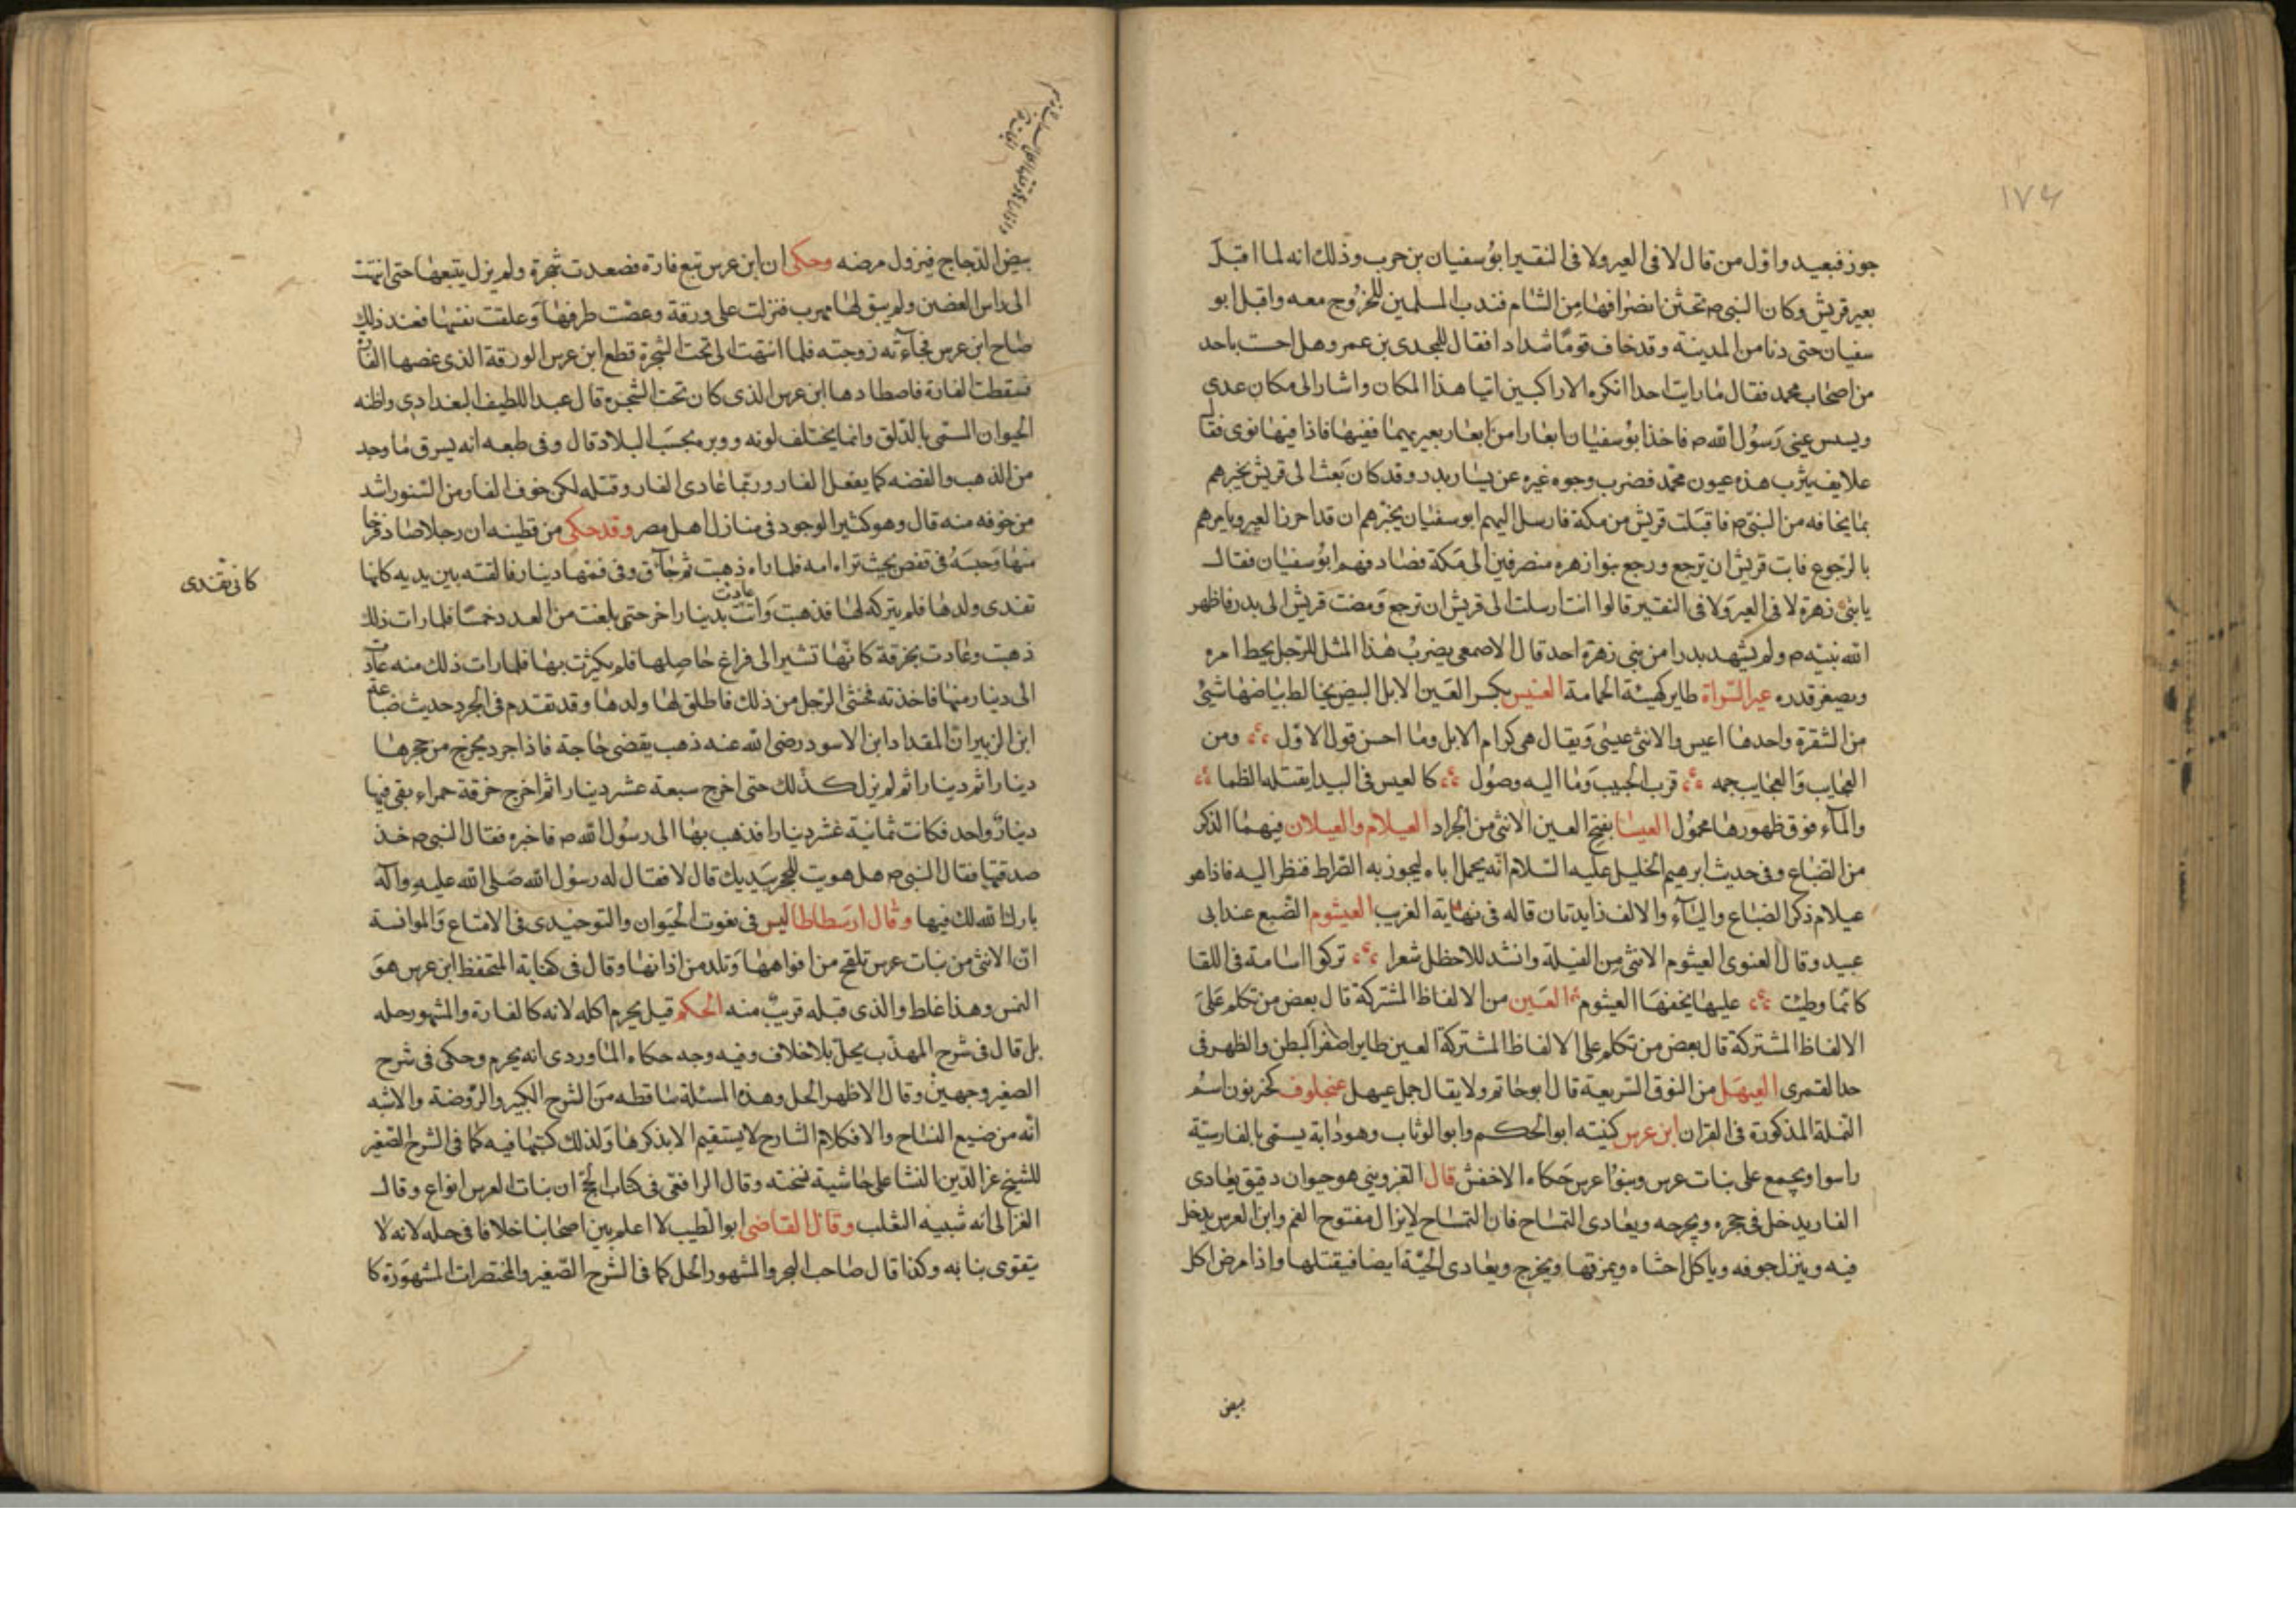 ١٧٤
جوز فبعيد واول من قال لا فى العير ولا فى النفير ابوسفيان بن حرب وذلك انه لما اقبل
بعير قريش وكان النبى ص تحثن انصرافها من الشام فندب المسلمين للخروج معه واقبل ابو
سفيان حتى دنا من المدينة وقد خاف قومًا شدادا فقال للمجدى بن عمر وهل احست باحد
من اصحاب محمد فقال ما رايت احدا انكره الا راكبين اتيا هذا المكان واشار الى مكان عدى
وبسبس عينى رسول الله ص فاخذ ابوسفيان ابعارا من ابعار بعيريهما ففتها فاذا فيها نوى فقا
علايف يثرب هذه عيون محمد فضرب وجوه غيره عن يسار بدر وقد كان بعث الى قريش يخبرهم
بما يخافه من النبى ص فاقبلت قريش من مكة فارسل اليهم ابوسفيان يخبرهم ان قد احرز العير ويامرهم
بالرجوع فابت قريش ان ترجع ورجع بنوا زهره منصرفين الى مكة فصادفهم ابوسفيان فقال
يا بنى زهرة لا فى العير ولا فى النفير قالوا انت ارسلت الى قريش ان ترجع ومضت قريش الى بدر فاظهر
الله نبيه ص ولم يشهد بدرا من بنى زهرة احد قال الاصمعى يضرب هذا المثل للرجل يحط امره
ويصغر قدره عير السراة طاير كهيئة الحمامة العيس بكسر العين الابل البيض يخالط بياضها شئ
من الشقرة واحدها اعيس والانثى عيسى ويقال هى كرام الابل وما احسن قول الاول ومن
العجايب والعجايب جمه قرب الحبيب وما اليه وصول كالعيس فى البيدا يقتلها الظما
والماء فوق ظهورها محمول العيسا بفتح العين الانثى من الجراد العيلام والعيلان فيهما الذكر
من الضباع وفى حديث ابرهيم الخليل عليه السلام انه يحمل اباه ليجوز به الصراط فنظر اليه فاذا هو
عيلام ذكر الضباع والياء والالف زايدتان قاله فى نهاية الغريب العيثوم الضبع عند ابى
عبيد وقال الغنوى العيثوم الانثى من الفيلة وانشد للاخطل شعرا تركوا اسامة فى اللقا
كانما وطيت عليها بخفها العيثوم العين من الالفاظ المشتركة قال بعض من تكلم على
الالفاظ المشتركة قال بعض من تكلم على الالفاظ المشتركة العين طاير اصفر البطن والظهر فى
حد القمرى العيهل من النوق السريعة قال ابوحاتم ولا يقال جمل عيهل عنجلوف كخزبون اسم
النملة المذكورة فى القران ابن عرس كنيته ابو الحكم وابو الوثاب وهو دابة يسمى بالفارسية
راسوا ويجمع على بنات عرس وبنوا عرس حكاه الاخفش قال القزوينى هو حيوان دقيق يعادى
الفار يدخل فى جحره ويخرجه ويعادى التمساح فان التمساح لا يزال مفتوح الفم وابن العرس يدخل
فيه وينزل جوفه وياكل احشاه ويمزقها ويخرج ويعادى الحية ايضا فيقتلها واذا مرض اكل
بيض
بيض الدجاج فيزول مرضه وحكى ان ابن عرس تبع فارة فصعدت شجرة ولم يزل يتبعها حتى انتهت
الى راس الغصن ولم يبق لها مهرب فنزلت على ورقة وعضت طرفها وعلقت نفسها فعند ذلك
صاح ابن عرس فجاءته زوجته فلما انتهت الى تحت الشجرة قطع ابن عرس الورقة الذى غصها الفارة
فسقطت الفارة فاصطادها ابن عرس الذى كان تحت الشجرة قال عبد اللطيف البغدادى واظنه
الحيوان المسمى بالدلق وانما يختلف لونه ووبره بحسب البلاد قال وفى طبعه انه يسرق ما وجد
من الذهب والفضه كما يفعل الفار وربما عادى الفار وقتله لكن خوف الفار من السنور اشد
من خوفه منه قال وهو كثير الوجود فى منازل اهل مصر وقد حكى من فطنه ان رجلا صاد فرخا
منها وحبسه فى قفص بحيث تراه امه فلما راه ذهبت ثم جات وفى فمها دينار فالقته بين يديه كانها
كانى تفندى
تفندى ولدها فلم يتركه لها فذهبت وانت عادت بدينار اخر حتى بلغت من العدد خمسا فلما رات ذلك
ذهبت وعادت بخرقة كانها تشير الى فراغ حاصلها فلم يكرث بها فلما رات ذلك منه عادت
الى دينار منها فاخذته فخشى الرجل من ذلك فاطلق لها ولدها وقد تقدم فى الجرد حديث ضباعة
ابن الزبير ان المقداد ابن الاسود رضى الله عنه ذهب يقضى حاجة فاذا جرد يخرج من حجرها
دينارا ثم دينارا ثم لم يزل كذلك حتى اخرج سبعة عشر دينارا ثم اخرج خرقة حمراء بقى فيها
دينار واحد فكانت ثمانية عشر دينارا فذهب بها الى رسول الله ص فاخبره فقال النبى ص خذ
صدقتها فقال النبى ص هل هويت للحجر بيديك قال لا فقال له رسول الله صلى الله عليه وآله
بارك الله لك فيها وقال ارسطاطاليس فى نعوت الحيوان والتوحيدى فى الامتاع والموانسة
ان الانثى من بنات عرس تلقح من افواهها وتلد من اذانها وقال فى كفاية المتحفظ ابن عرس هو
النمس وهذا غلط والذى قبله قريب منه الحكم قيل يحرم اكله لانه كالفارة والمشهور حله
بل قال فى شرح المهذب يحل بلا خلاف وفيه وجه حكاه الماوردى انه يحرم وحكى فى شرح
الصغير وجهين وقال الاظهر الحل وهذه المسئلة ساقطه من الشرح الكبير والروضة والاشبه
انه من ضيع النساح والا فكلام الشارح لا يستقيم الا بذكرها ولذلك كتبها فيه كما فى الشرح الصغير
للشيخ عز الدين النشا على حاشية نسخته وقال الرافعى فى كتاب الحج ان بنات العرس انواع وقال
الغزالى انه شبيه الثعلب وقال القاضى ابو الطيب لا اعلم بين اصحابنا خلافا فى حله لانه لا
يتقوى بنابه وكذا قال صاحب البحر والمشهور الحل كما فى الشرح الصغير والمختصرات المشهورة كا